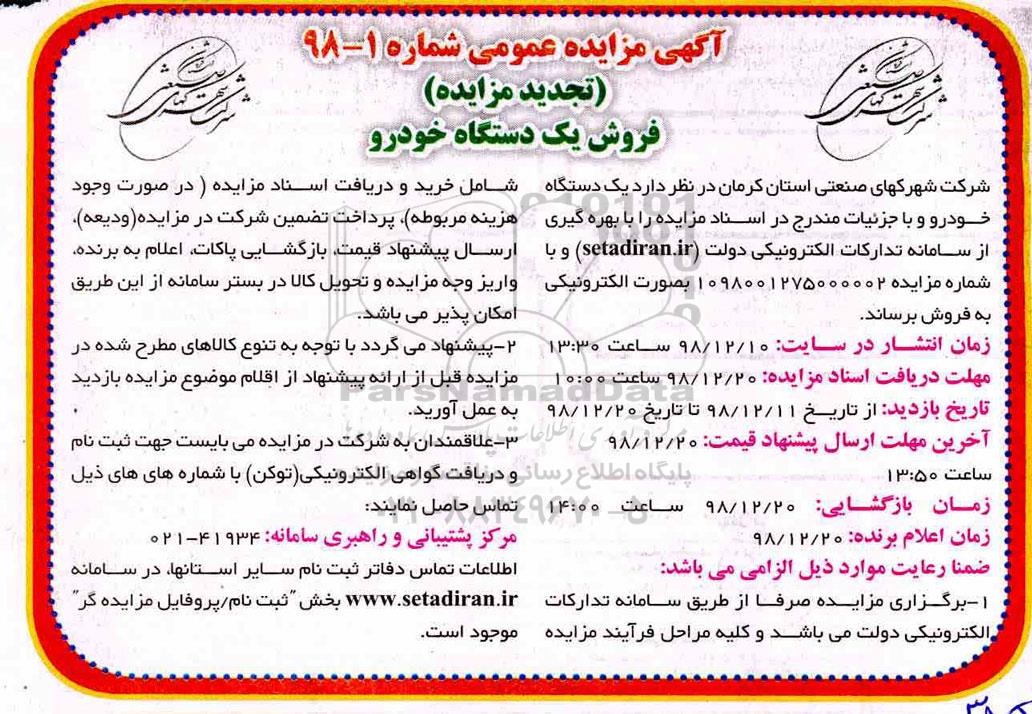 آگهی مزایده عمومی شماره ۱-۹۸
(تجدید مزایده)
فروش یک دستگاه خودرو
شرکت شهرکهای صنعتی استان کرمان در نظر دارد یک دستگاه
خودرو و با جزئیات مندرج در اسناد مزایده را با بهره گیری
از سامانه تدارکات الکترونیکی دولت (setadiran.ir) و با
شماره مزایده ۱۰۹۸۰۰۱۲۷۵۰۰۰۰۰۲ بصورت الکترونیکی
به فروش برساند.
زمان انتشار در سایت: ۹۸/۱۲/۱۰ ساعت ۱۳:۳۰
مهلت دریافت اسناد مزایده: ۹۸/۱۲/۲۰ ساعت ۱۰:۰۰
تاریخ بازدید: از تاریخ ۹۸/۱۲/۱۱ تا تاریخ ۹۸/۱۲/۲۰
آخرین مهلت ارسال پیشنهاد قیمت: ۹۸/۱۲/۲۰
ساعت ۱۳:۵۰
زمان بازگشایی: ۹۸/۱۲/۲۰ ساعت ۱۴:۰۰
زمان اعلام برنده: ۹۸/۱۲/۲۰
ضمنا رعایت موارد ذیل الزامی می باشد:
۱-برگزاری مزایده صرفا از طریق سامانه تدارکات
الکترونیکی دولت می باشد و کلیه مراحل فرآیند مزایده
شامل خرید و دریافت اسناد مزایده ( در صورت وجود
هزینه مربوطه)، پرداخت تضمین شرکت در مزایده(ودیعه)،
ارسال پیشنهاد قیمت، بازگشایی پاکات، اعلام به برنده،
واریز وجه مزایده و تحویل کالا در بستر سامانه از این طریق
امکان پذیر می باشد.
۲-پیشنهاد می گردد با توجه به تنوع کالاهای مطرح شده در
مزایده قبل از ارائه پیشنهاد از اقلام موضوع مزایده بازدید
به عمل آورید.
۳-علاقمندان به شرکت در مزایده می بایست جهت ثبت نام
و دریافت گواهی الکترونیکی(توکن) با شماره های های ذیل
تماس حاصل نمایند:
مرکز پشتیبانی و راهبری سامانه: ۴۱۹۳۴-۰۲۱
اطلاعات تماس دفاتر ثبت نام سایر استانها، در سامانه
www.setadiran.ir بخش "ثبت نام/پروفایل مزایده گر"
موجود است.
ParsNamadData
۰۲۱-۸۸۳۴۹۶۷۰-۵